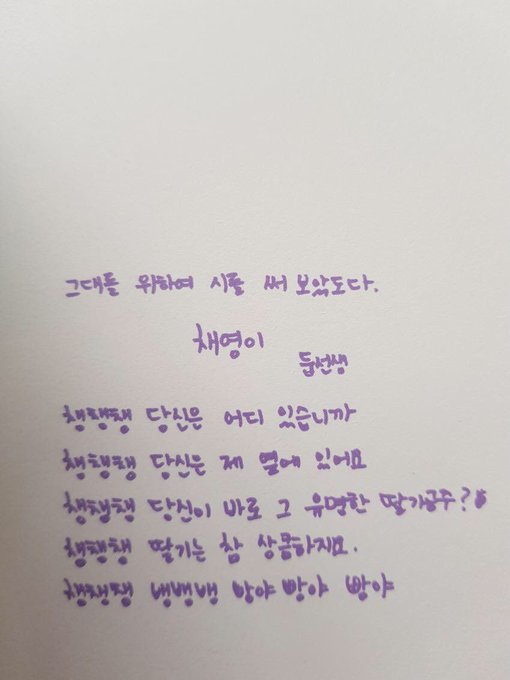 그대들 위하여 시를 써 보았도다.
채영이
둡선생
챙챙챙 당신은 어디 있습니까
챙챙챙 당신은 제 옆에 있어요
챙챙챙 당신이 바로 그 유명한 딸기공주?
챙챙챙 딸기는 참 상콤하지요.
챙챙챙 빵야 빵야 빵야